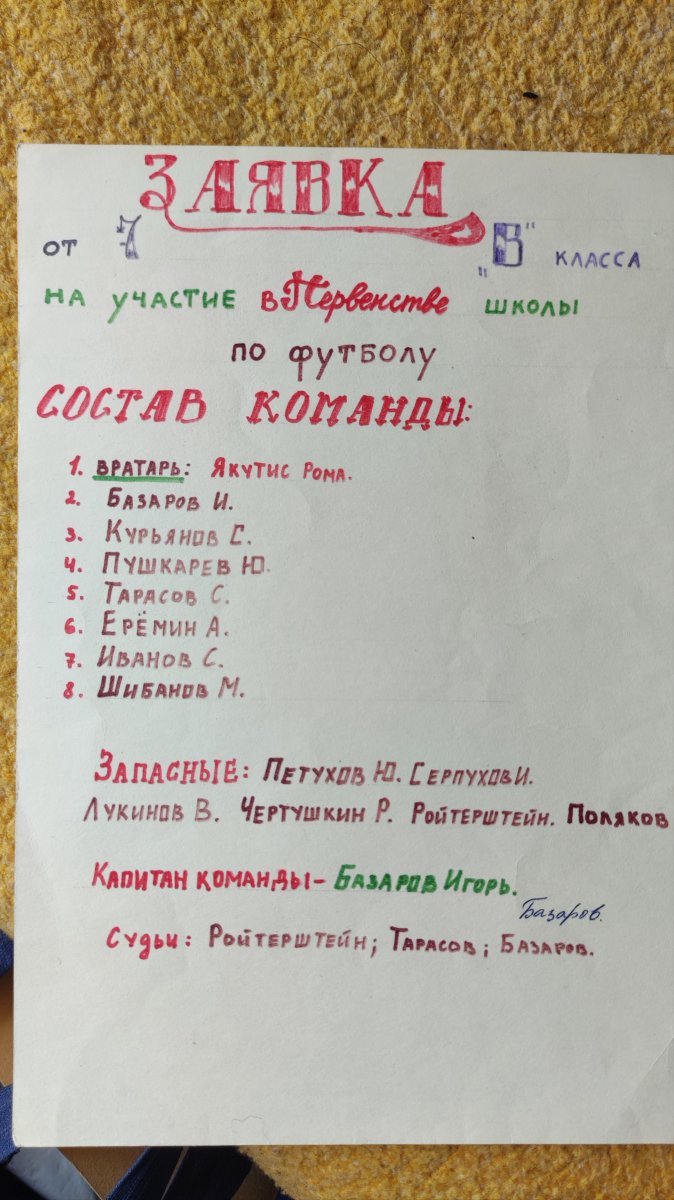 ЗАЯВКА
от 7 „В" класса
на участие в Первенстве школы
по футболу
СОСТАВ КОМАНДЫ:
1. ВРАТАРЬ: ЯКУТИС РОМА.
2. БАЗАРОВ И.
3. КУРЬЯНОВ С.
4. ПУШКАРЕВ Ю.
5. ТАРАСОВ С.
6. ЕРЁМИН А.
7. ИВАНОВ С.
8. ШИБАНОВ М.
ЗАПАСНЫЕ: ПЕТУХОВ Ю. СЕРПУХОВ И.
ЛУКИНОВ В. ЧЕРТУШКИН Р. РОЙТЕРШТЕЙН. ПОЛЯКОВ
КАПИТАН КОМАНДЫ – БАЗАРОВ ИГОРЬ.
Базаров.
СУДЬИ: РОЙТЕРШТЕЙН; ТАРАСОВ; БАЗАРОВ.